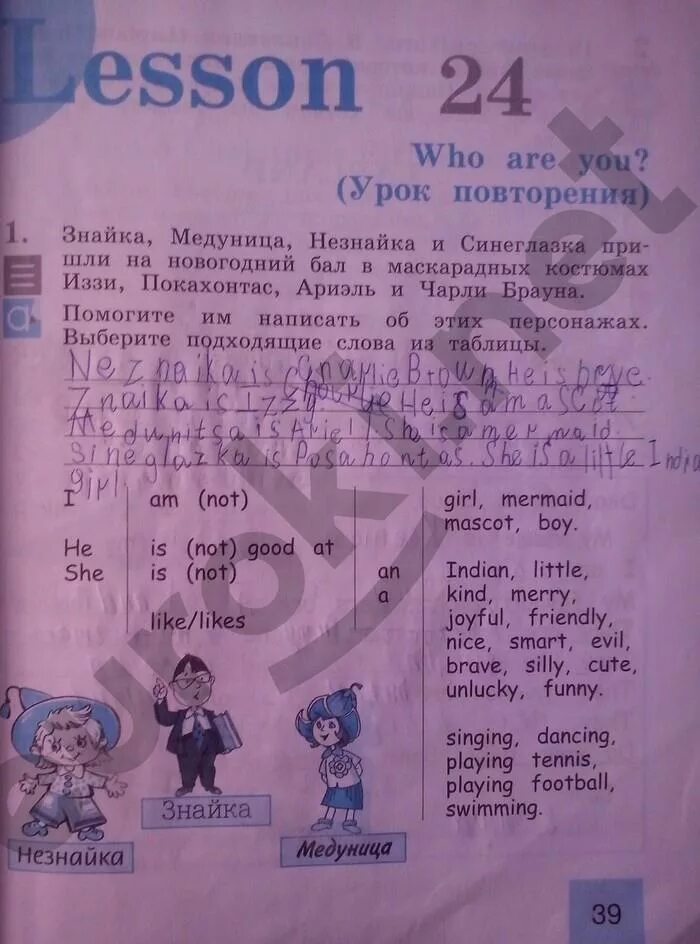 Lesson 24
Who are you?
(Урок повторения)
1. Знайка, Медуница, Незнайка и Синеглазка при-
шли на новогодний бал в маскарадных костюмах
Иззи, Покахонтас, Ариэль и Чарли Брауна.
a Помогите им написать об этих персонажах.
Выберите подходящие слова из таблицы.
Neznaika is Charlie Brown He is
Znaika is Izzy. He is a mascot
Medunitsa is Ariel. She is a mermaid.
Sineglazka is Posahontas. She is a little India
girl.
I am (not) girl, mermaid,
mascot, boy.
He is (not) good at
She is (not) an Indian, little,
a kind, merry,
like/likes joyful, friendly,
nice, smart, evil,
brave, silly, cute,
unlucky, funny.
singing, dancing,
playing tennis,
playing football,
swimming.
Знайка
Незнайка
Медуница
39
eurokl.net